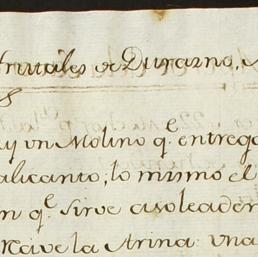 frutales de Durasno,
s
ay un Molino q.e entrega
alicanto; lo mismo el
n q.e sirve asoleader
recive la Arina: una